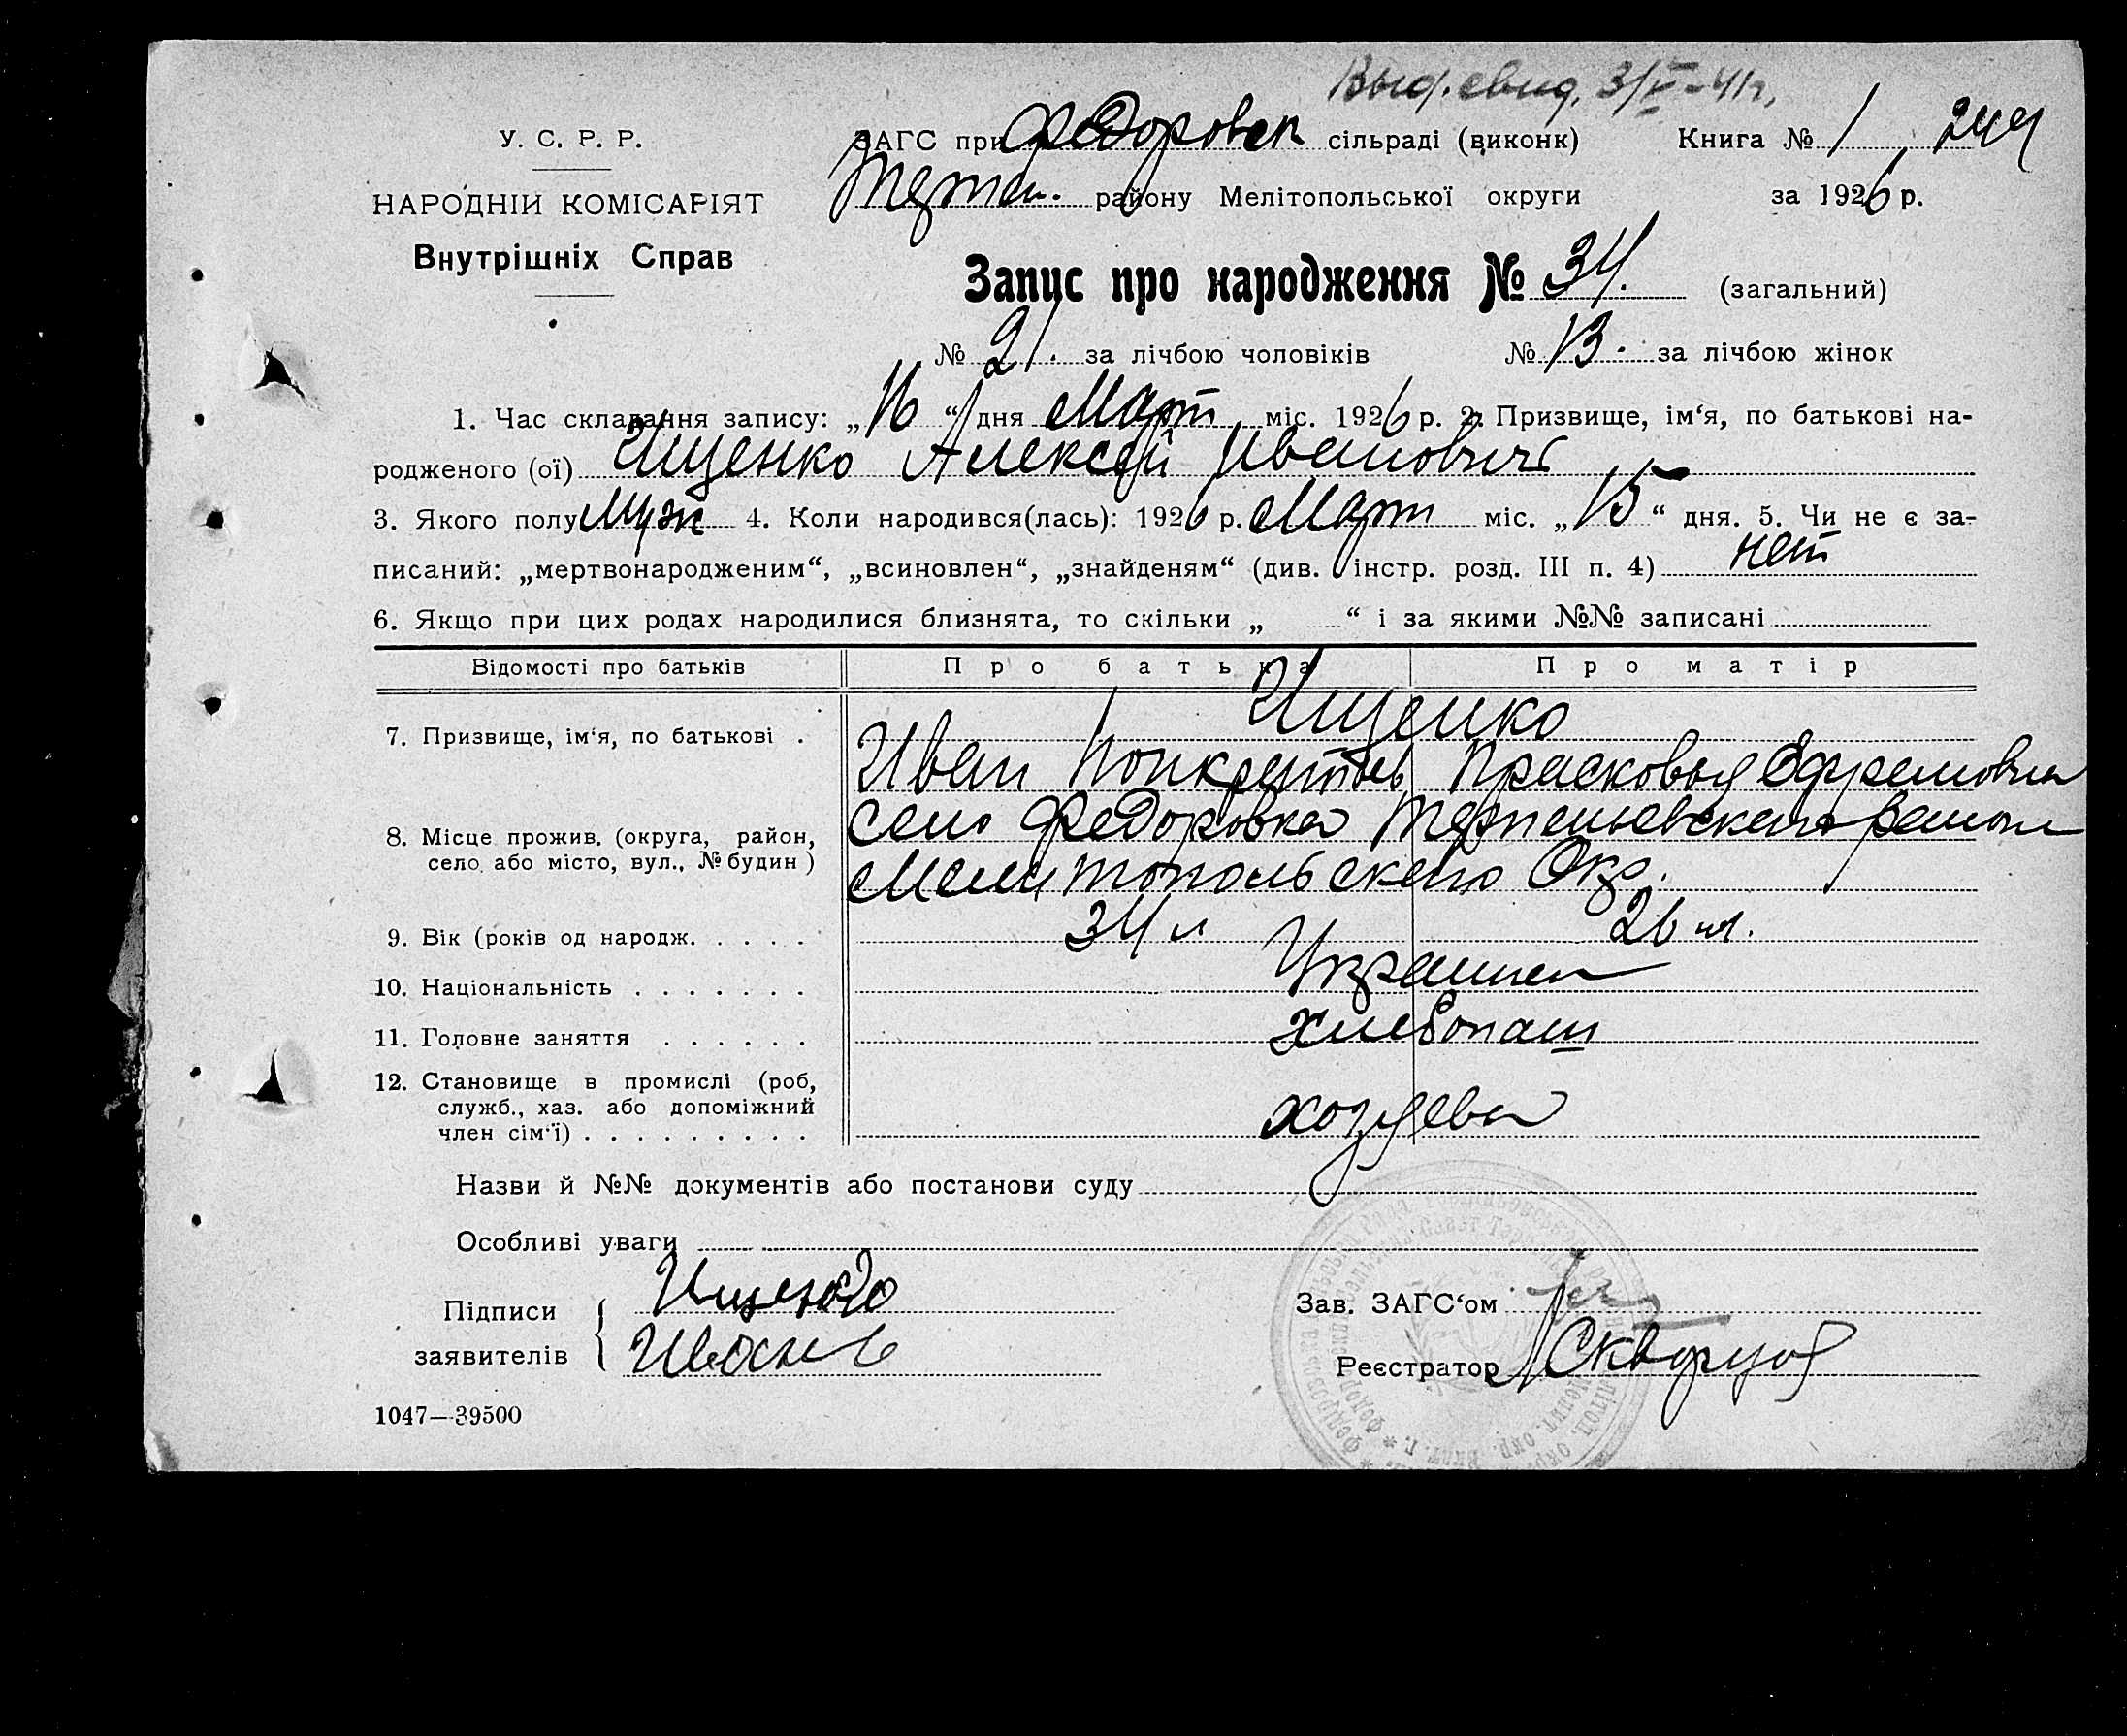 Выд. свид. 3/V-41г.
У. С. Р. Р.
ЗАГС при Федоровск сільраді (виконк) Книга № 1, 244
Терпен. району Мелітопольської округи за 1926 р.
НАРОДНІЙ КОМІСАРІЯТ
Внутрішніх Справ
Запис про народження № 34. (загальний)
№ 21. за лічбою чоловіків № 13. за лічбою жінок
1. Час складання запису: „16“ дня Март міс. 1926 р. 2. Призвище, ім‘я, по батькові на-
родженого (ої) Ищенко Алексей Иванович
3. Якого полу Муж 4. Коли народився(лась): 1926 р. Март міс. „15“ дня. 5. Чи не є за-
писаний: „мертвонародженим“, „всиновлен“, „знайденям“ (див. інстр. розд. III п. 4) нет
6. Якщо при цих родах народилися близнята, то скільки „ “ і за якими №№ записані
Відомості про батьків Про батька Про матір
Ищенко
7. Призвище, ім‘я, по батькові .
Иван Прасковья Ефремовна
8. Місце прожив. (округа, район,
село або місто, вул., № будин )
село Федоровка Терпеньевского района
Мелитопольского Окр.
9. Вік (років од народж. . . . . 34 л 26 л.
10. Національність . . . . . . . Украинец
11. Головне заняття . . . . . . хлебопаш
12. Становище в промислі (роб,
служб., хаз. або допоміжний
член сім‘ї) . . . . . . . . . хозяева
Назви й №№ документів або постанови суду
Особливі уваги
Підписи
заявителів
Ищенко
Иван
Зав. ЗАГС‘ом
Реєстратор Скворцов
1047—39500